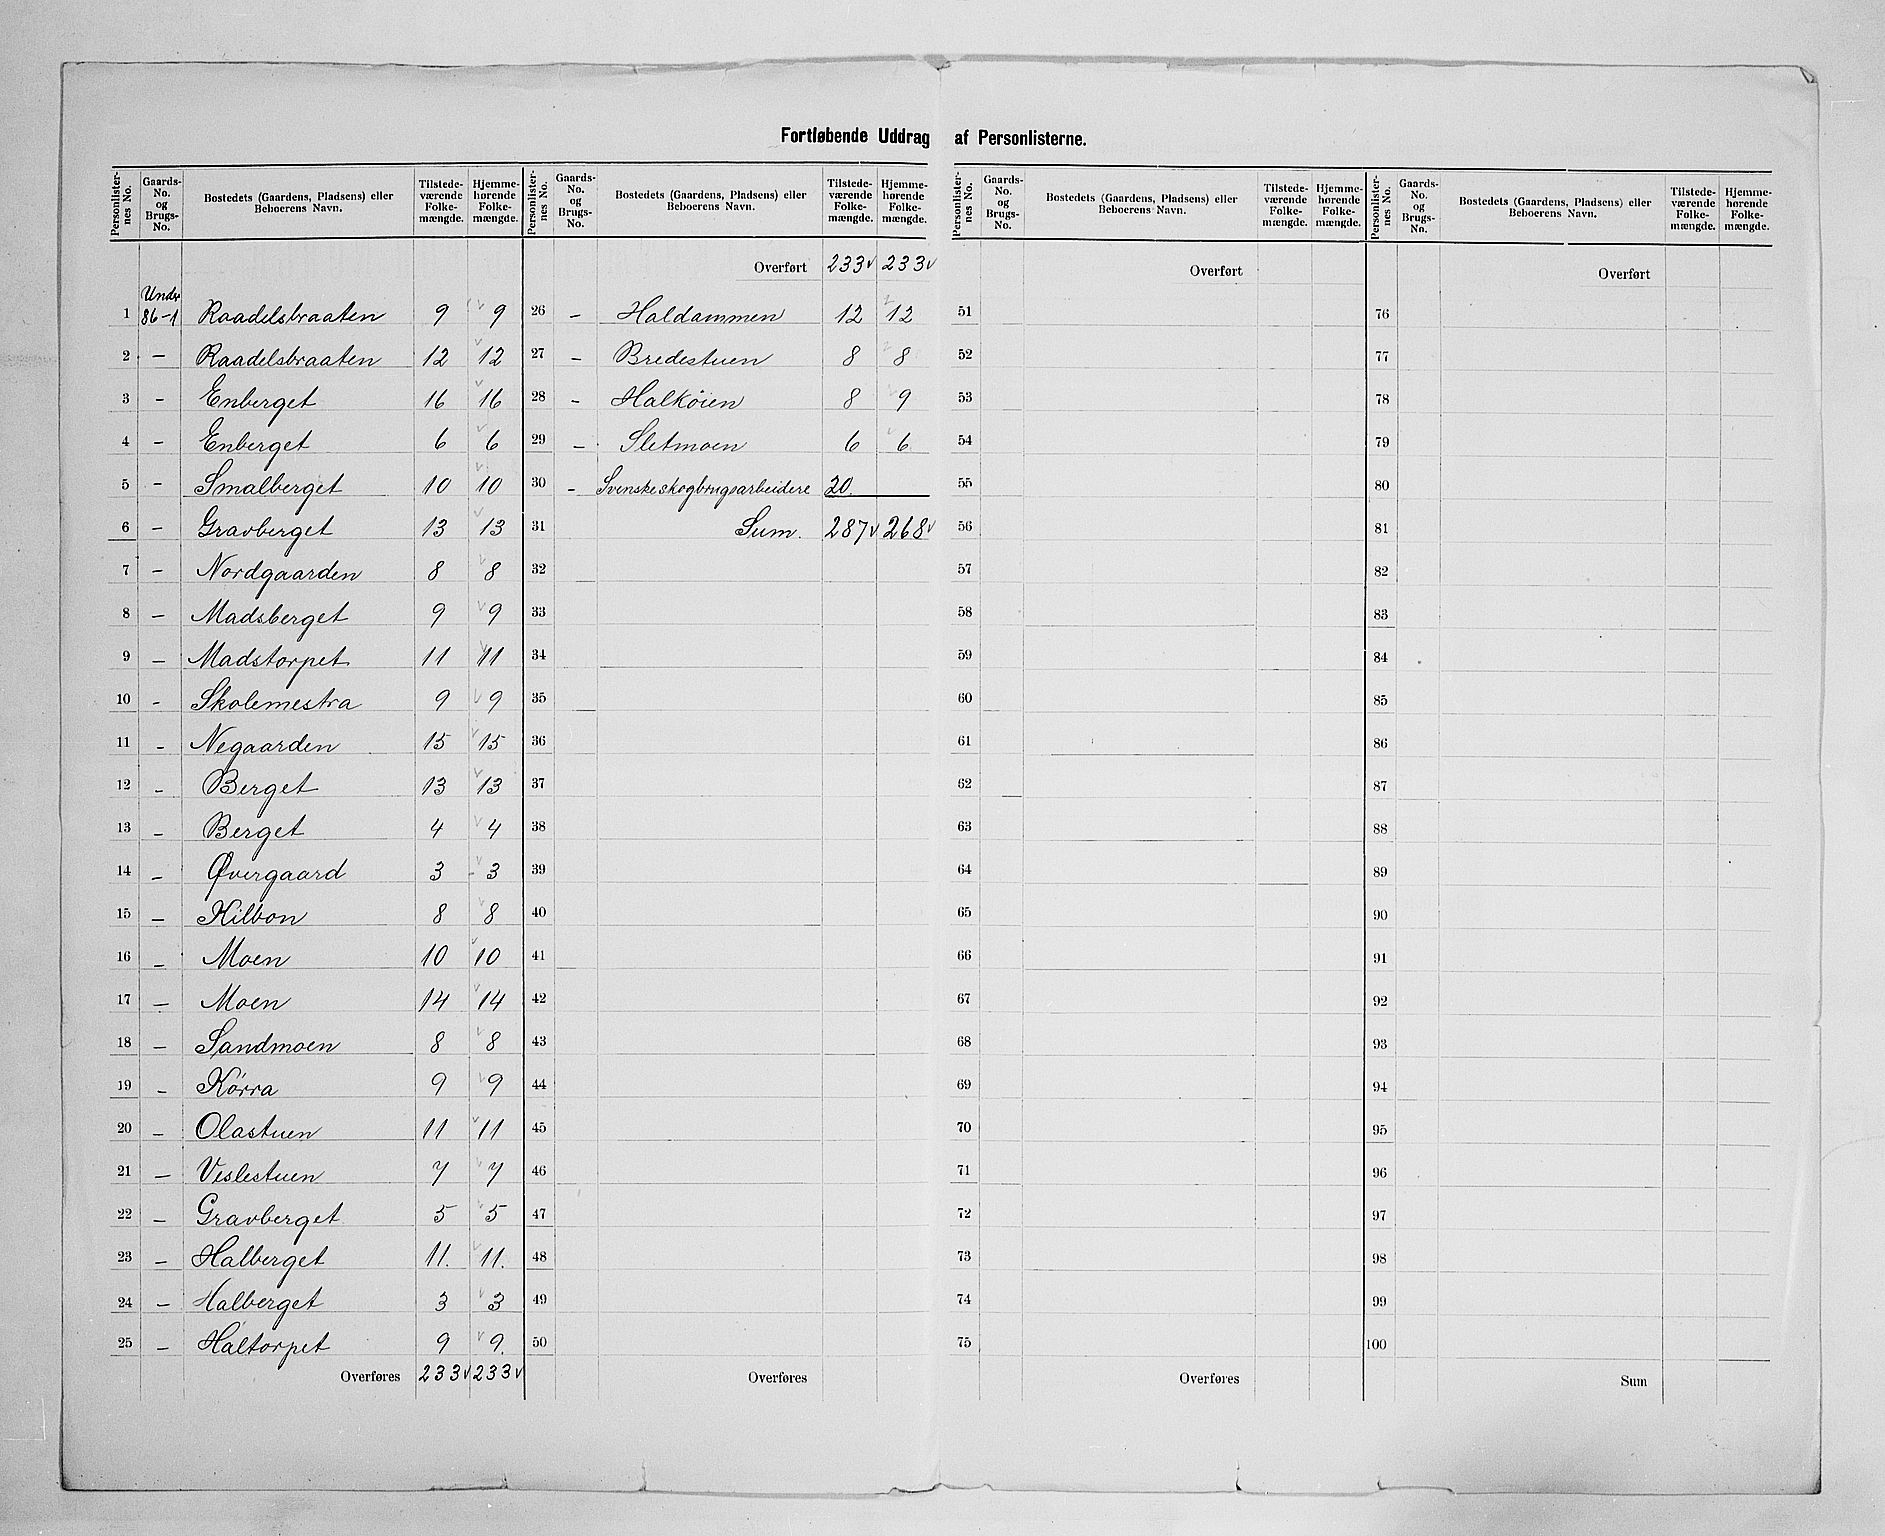 Fortløbende Uddrag af Personlisterne.
Personlisternes No. | Gaards-No. og Brugs-No. | Bostedets (Gaardens, Pladsens) eller Beboerens Navn. | Tilstedeværende Folkemængde. | Hjemmehørende Folkemængde.
Personlisternes No. | Gaards-No. og Brugs-No. | Bostedets (Gaardens, Pladsens) eller Beboerens Navn. | Tilstedeværende Folkemængde. | Hjemmehørende Folkemængde.
Personlisternes No. | Gaards-No. og Brugs-No. | Bostedets (Gaardens, Pladsens) eller Beboerens Navn. | Tilstedeværende Folkemængde. | Hjemmehørende Folkemængde.
Personlisternes No. | Gaards-No. og Brugs-No. | Bostedets (Gaardens, Pladsens) eller Beboerens Navn. | Tilstedeværende Folkemængde. | Hjemmehørende Folkemængde.
Under
1 86-1 Raadelsbraaten 9 9
2 - Raadelsbraaten 12 12
3 - Enberget 16 16
4 - Enberget 6 6
5 - Smalberget 10 10
6 - Gravberget 13 13
7 - Nordgaarden 8 8
8 - Madsberget 9 9
9 - Madstorpet 11 11
10 - Skolemestra 9 9
11 - Negaarden 15 15
12 - Berget 13 13
13 - Berget 4 4
14 - Øvergaard 3 3
15 - Kilbon 8 8
16 - Moen 10 10
17 - Moen 14 14
18 - Sandmoen 8 8
19 - Kørra 9 9
20 - Olastuen 11 11
21 - Veslestuen 7 7
22 - Gravberget 5 5
23 - Halberget 11. 11.
24 - Halberget 3 3
25 - Haltorpet 9 9.
Overføres 233 v 233 v
Overført 233 v 233 v
26 - Haldammen 12 12
27 - Bredestuen 8 8
28 - Halkøien 8 9
29 - Sletmoen 6 6
30 - Svenske skogbrugsarbeidere 20.
31 Sum. 287 v 268 v
32
33
34
35
36
37
38
39
40
41
42
43
44
45
46
47
48
49
50
Overføres
Overført
51
52
53
54
55
56
57
58
59
60
61
62
63
64
65
66
67
68
69
70
71
72
73
74
75
Overføres
Overført
76
77
78
79
80
81
82
83
84
85
86
87
88
89
90
91
92
93
94
95
96
97
98
99
100
Sum